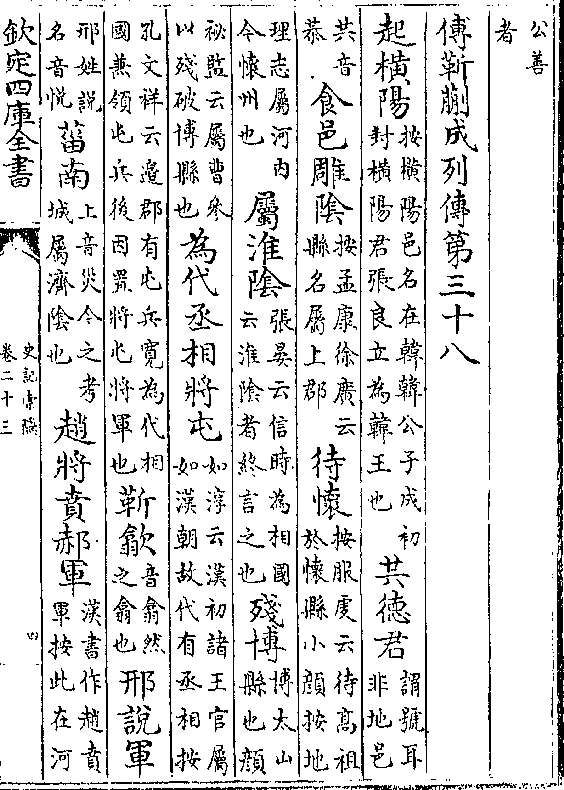 公善者
傅靳蒯成列傳第三十八
起橫陽按橫陽邑名在韓韓公子成初封橫陽君張良立為韓王也共德君謂號耳非地邑
共音恭食邑雕陰按孟康徐廣云縣名屬上郡待懷按服虔云待髙祖於懷縣小顔按地
理志屬河内今懷州也屬淮陰張晏云信時為相國云淮陰者終言之也殘博博太山縣也顔
祕監云屬曹參以殘破博縣也為代丞相將屯如淳云漢初諸王官屬如漢朝故代有丞相按
孔文祥云邊郡有屯兵寛為代相國兼領屯兵後因置將屯將軍也靳歙音翕然之翕也邢說軍
邢姓說名音悅菑南上音災今之考城屬濟陰也趙將賁郝軍漢書作趙賁軍按此在河
欽定四庫全書
史記索隱
卷二十三
四